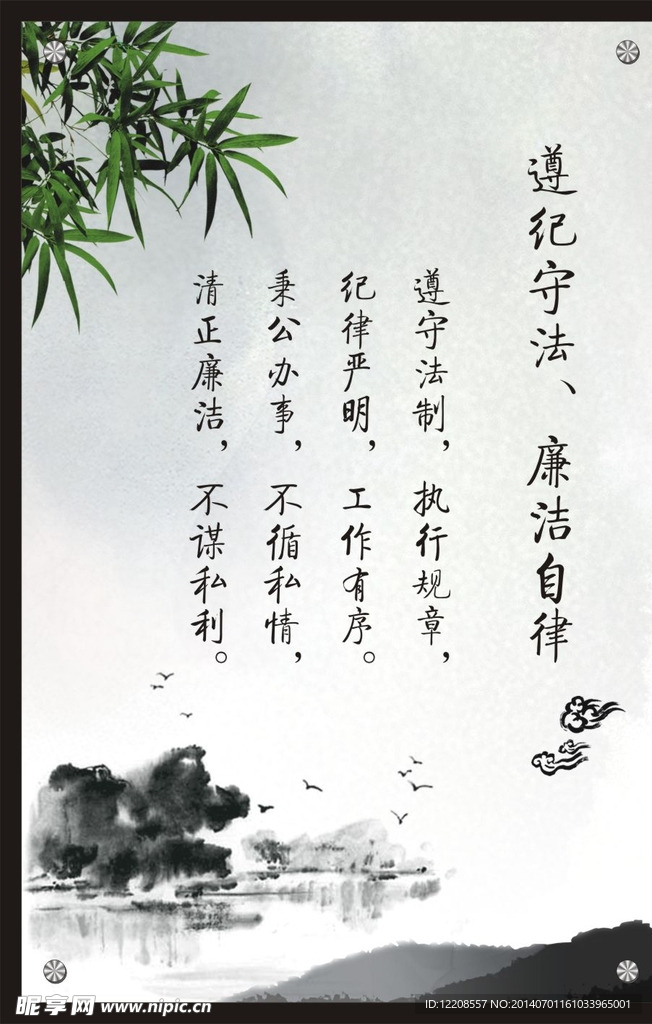 遵纪守法、廉洁自律
遵守法制，执行规章，
纪律严明，工作有序。
秉公办事，不循私情，
清正廉洁，不谋私利。
昵享网 www.nipic.cn
ID:12208557 NO:20140701161033965001